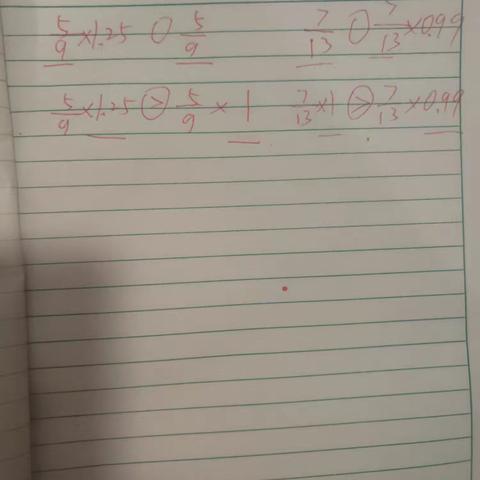 5/9 ×1.25 ○ 5/9 7/13 ○ 7/13 ×0.99
5/9 ×1.25 > 5/9 × 1 7/13 ×1 > 7/13 ×0.99